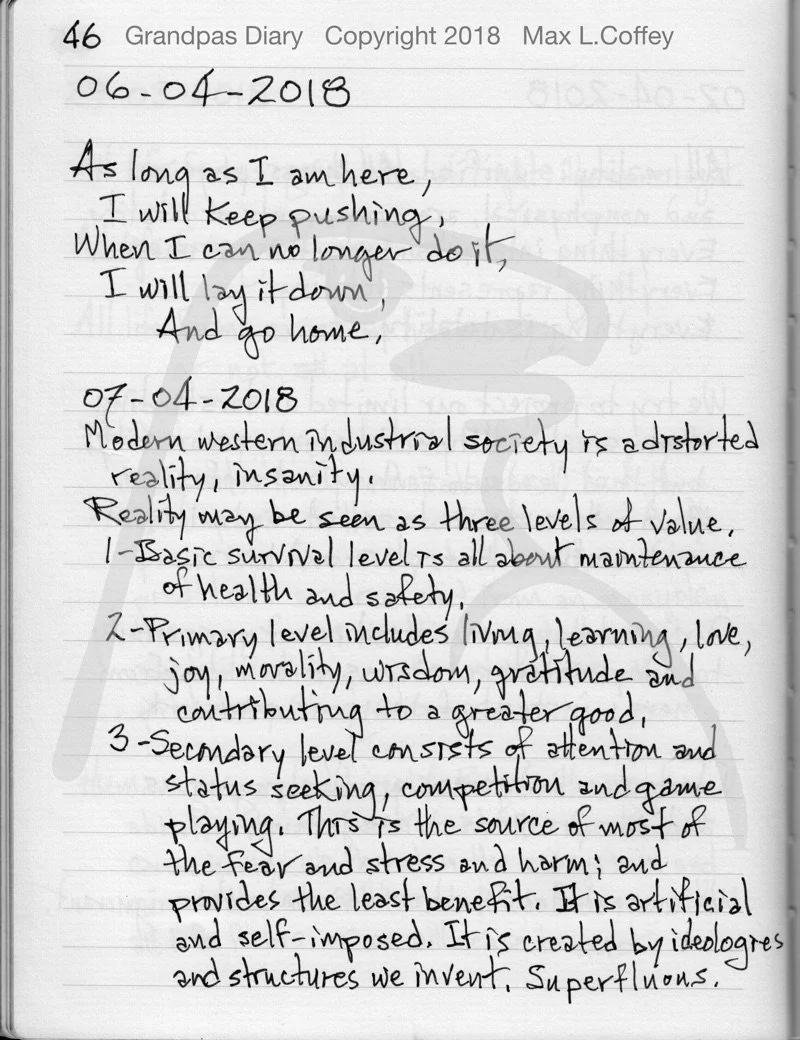 46 Grandpas Diary Copyright 2018 Max L.Coffey
06-04-2018
As long as I am here,
I will keep pushing,
When I can no longer do it,
I will lay it down,
And go home,
07-04-2018
Modern western industrial society is a distorted
reality, insanity.
Reality may be seen as three levels of value.
1-Basic survival level is all about maintenance
of health and safety,
2-Primary level includes living, learning, love,
joy, morality, wisdom, gratitude and
contributing to a greater good,
3-Secondary level consists of attention and
status seeking, competition and game
playing. This is the source of most of
the fear and stress and harm; and
provides the least benefit. It is artificial
and self-imposed. It is created by ideologies
and structures we invent. Superfluous.